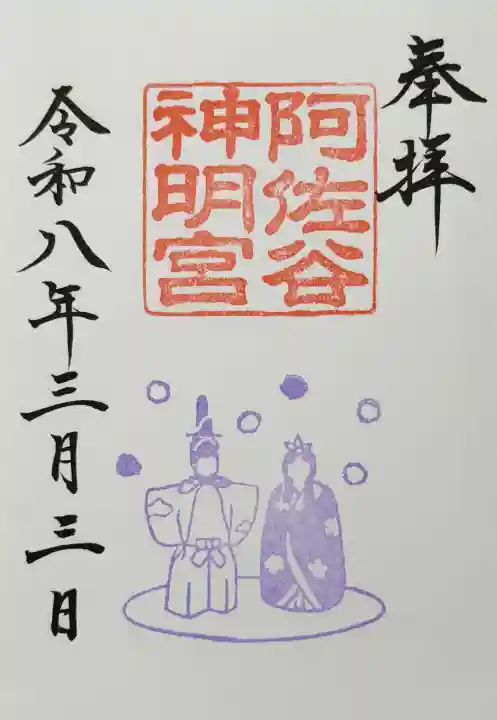 奉拝
阿佐谷
神明宮
令和八年三月三日